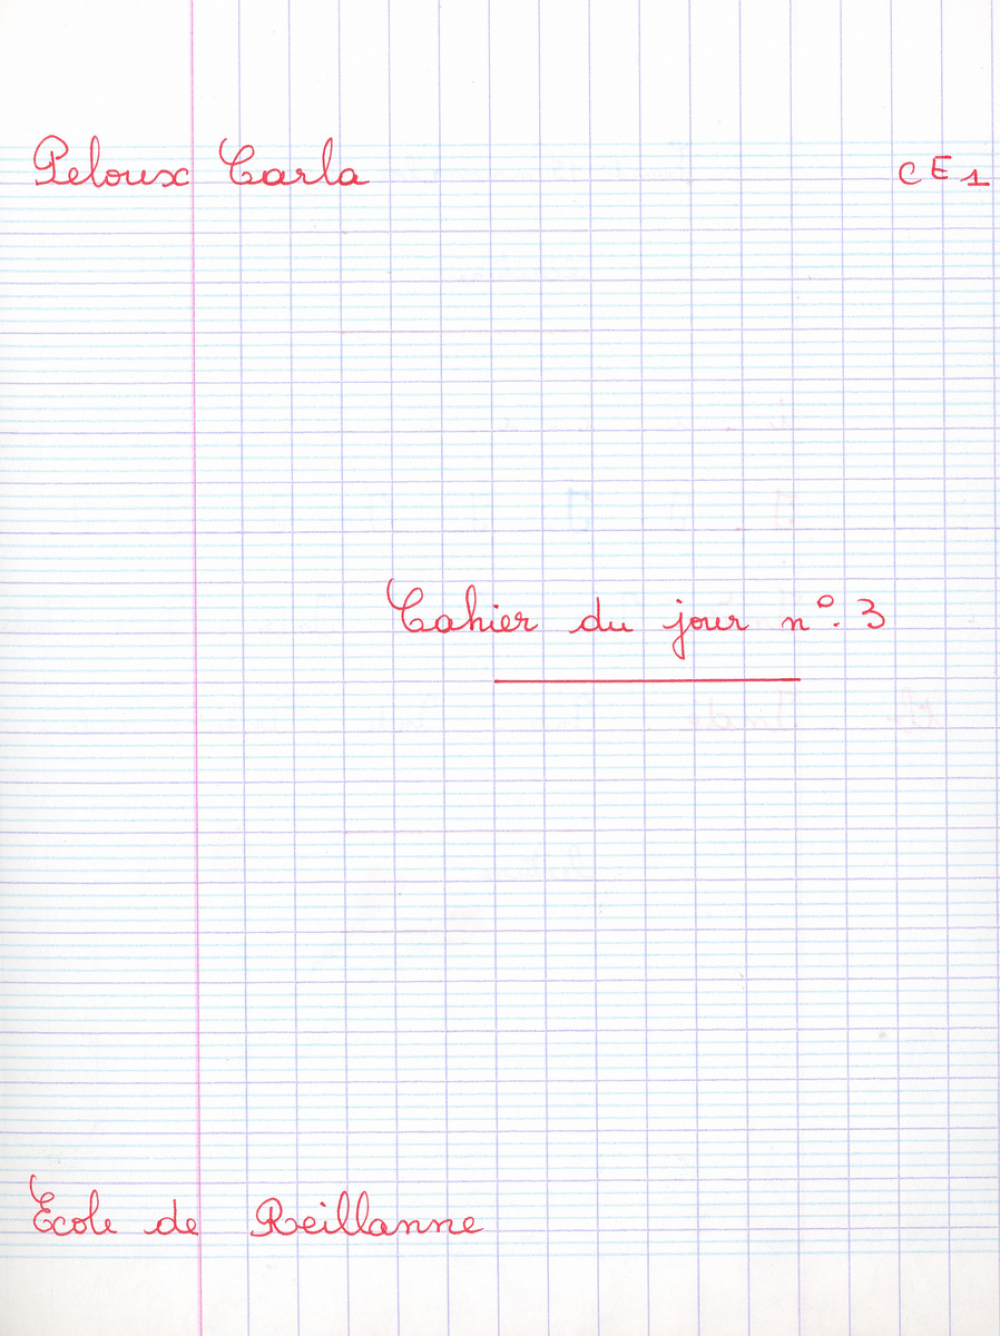 Peloux Carla CE1
Cahier du jour n°.3
Ecole de Reillanne